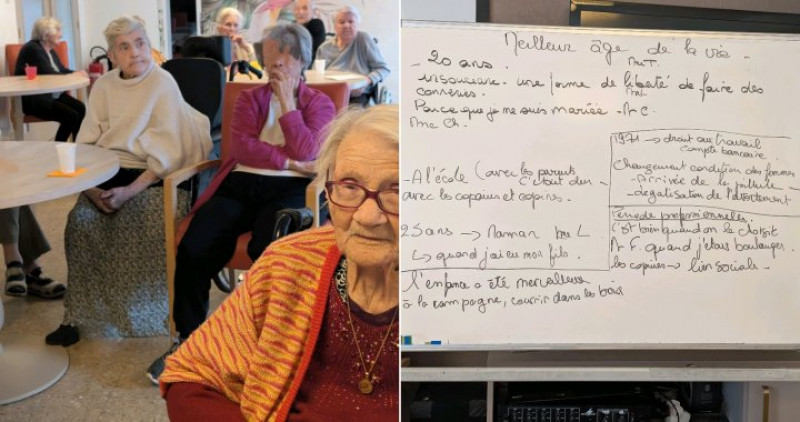 Meilleur âge de la vie -
- 20 ans. Mme T.
insouciance. une forme de liberté de faire des
conneries.
Parce que je me suis mariée - Mr C.
Mme Ch.
- A l'école (avec les parents c'était dur -
avec les copains et copines.
25 ans → Maman Mme L
↳ quand j'ai eu mon fils.
l'enfance a été merveilleuse
à la campagne, courir dans les bois
1971 → droit au travail
compte bancaire
Changement condition des femmes
- Arrivée de la pilule -
- légalisation de l'avortement
Période professionnelles.
c'est bien quand on le choisit
Mr F. quand j'étais boulanger.
les copines → lien sociale -